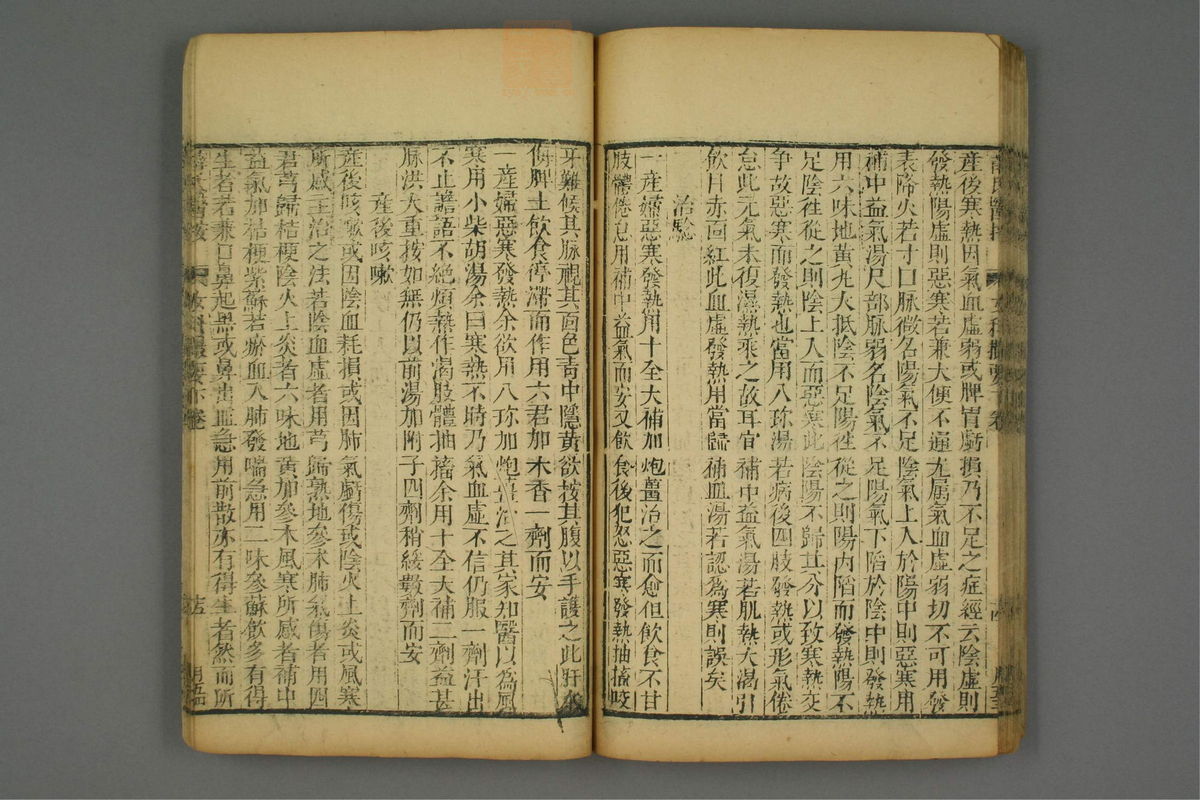 産後寒熱因氣血虚弱或脾胃虧損乃不足之症經云陰虚則
發熱陽虚則惡寒若兼大便不通尤屬氣血虚弱切不可用發
表降火若寸口脉微名陽氣不足陰氣上入於陽中則惡寒用
補中益氣湯尺部脉弱名陰氣不足陽氣下陷於陰中則發熱
用六味地黄丸大抵陰不足陽徃從之則陽内陷而發熱陽不
足陰徃從之則陰上入而惡寒此陰陽不歸其分以致寒熱交
争故惡寒而發熱也當用八珎湯若病後四肢發熱或形氣倦
怠此元氣未復濕熱乘之故耳宜補中益氣湯若肌熱大渴引
飲目赤面紅此血虚發熱用當歸補血湯若認爲寒則誤矣
治驗
一産婦惡寒發熱用十全大補加炮薑治之而愈但飲食不甘
肢體倦怠用補中益氣而安又飲食後犯怒惡寒發熱抽搐咬
牙難候其脉視其面色青中隱黄欲按其腹以手護之此肝木
侮脾土飲食停滯而作用六君加木香一劑而安
一産婦惡寒發熱余欲用八珎加炮薑治之其家知醫以為風
寒用小柴胡湯余曰寒熱不時乃氣血虚不信仍服一劑汗出
不止譫語不絶煩熱作渴肢體抽搐余用十全大補二劑益甚
脉洪大重按如無仍以前湯加附子四劑稍緩數劑而安
産後咳嗽
産後咳嗽或因陰血耗損或因肺氣虧傷或陰火上炎或風寒
所感主治之法若陰血虚者用芎歸熟地參术肺氣傷者用四
君芎歸桔梗陰火上炎者六味地黄加參术風寒所感者補中
益氣加桔梗紫蘇若瘀血入肺發喘急用二味參蘇飲多有得
生者若兼口鼻起黑或鼻出血急用前散亦有得生者然而所